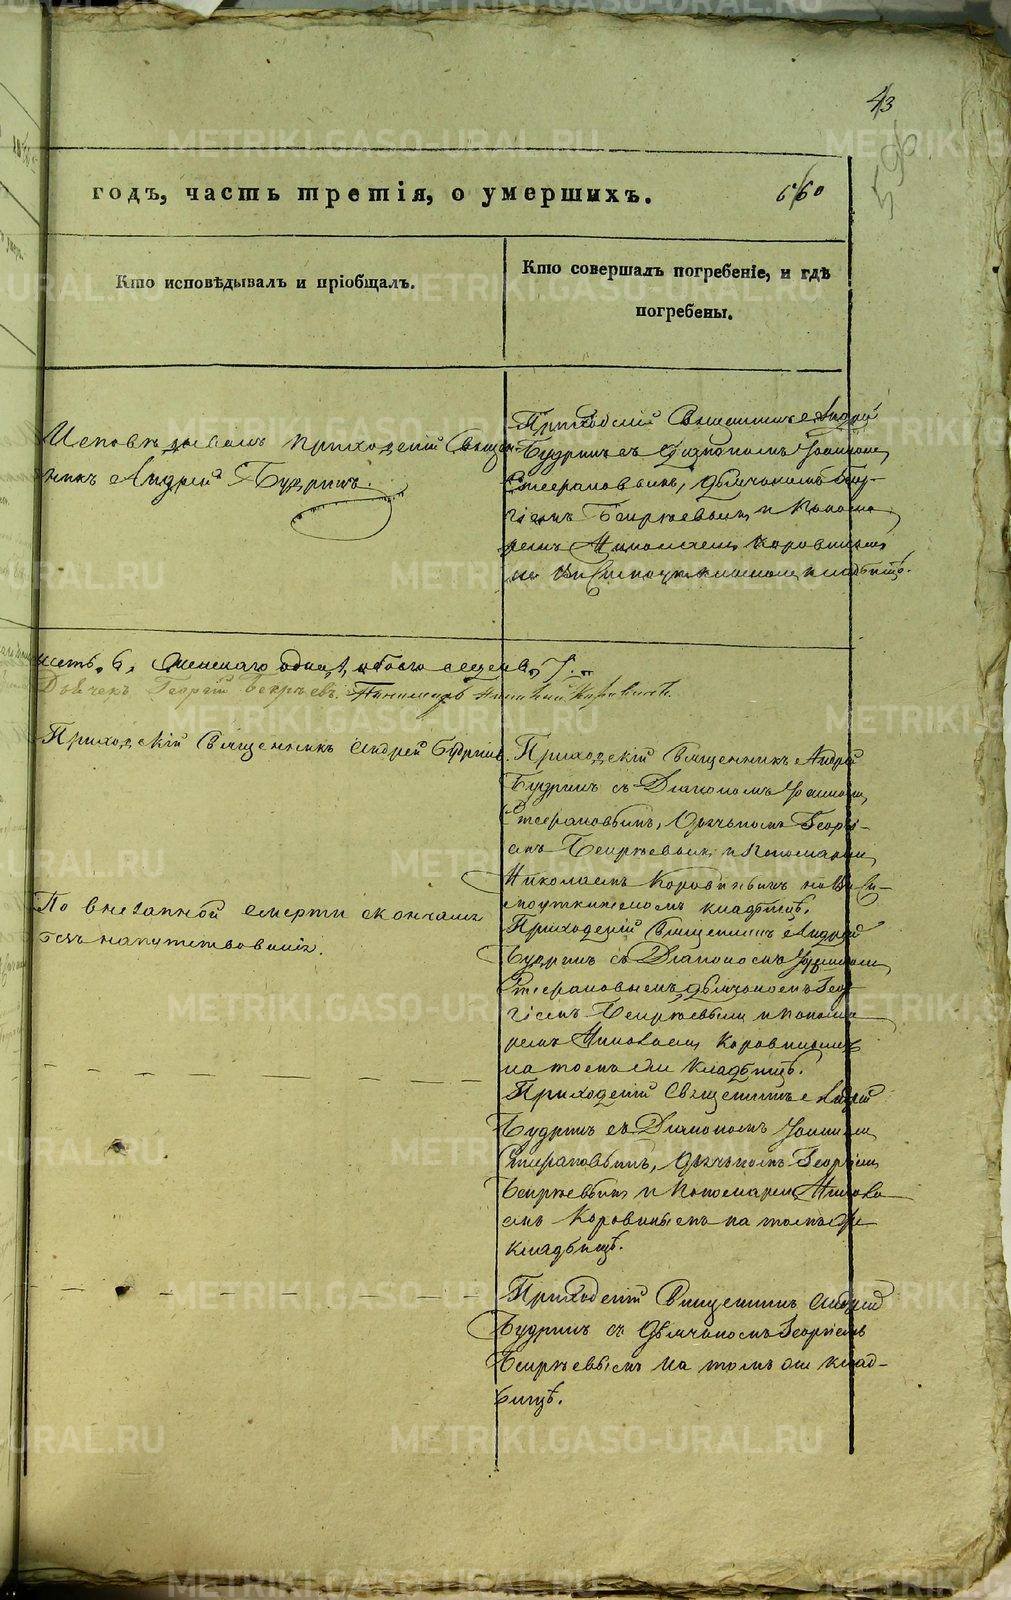 43
596
годъ, часть третія, о умершихъ.
660
Кто исповѣдывалъ и пріобщалъ.
Кто совершалъ погребеніе, и гдѣ
погребены.
Исповѣдывалъ приходскій Священ-
никъ Андрей Будринъ.
Приходскій Священникъ Андрей
Будринъ съ Діакономъ Іоанномъ
Стефановымъ, Дьячкомъ Геор-
гіемъ Бекрѣевымъ и Понома-
ремъ Николаемъ Коровинымъ
на
кладбищѣ.
6, Женскаго одна, 1, обоего
7.
Дьячекъ Георгій Бекрѣевъ. Пономарь Николай Коровинъ.
Приходскій Священникъ Андрей Будринъ.
Приходскій Священникъ Андрей
Будринъ съ Діакономъ Іоанномъ
Стефановымъ, Дьячкомъ Георгі-
емъ Бекрѣевымъ и Пономаремъ
Николаемъ Коровинымъ на
кладбищѣ.
По внезапной смерти скончалъ
безъ напутствованія.
Приходскій Священникъ Андрей
Будринъ съ Діакономъ Іоанномъ
Стефановымъ, Дьячкомъ Геор-
гіемъ Бекрѣевымъ и Понома-
ремъ Николаемъ Коровинымъ
на томъ же кладбищѣ.
Приходскій Священникъ Андрей
Будринъ съ Діакономъ Іоанномъ
Стефановымъ, Дьячкомъ Георгіемъ
Бекрѣевымъ и Пономаремъ Никола-
емъ Коровинымъ на томъ же
кладбищѣ.
Приходскій Священникъ Андрей
Будринъ съ Дьячкомъ Георгіемъ
Бекрѣевымъ на томъ же клад-
бищѣ.
METRIKI.GASO-URAL.RU